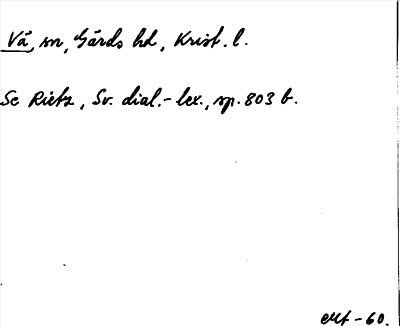 Vä, sn, Gärds hd, Krist. l.
Se Rietz, Sv. dial.-lex., sp. 803 b.
-60.